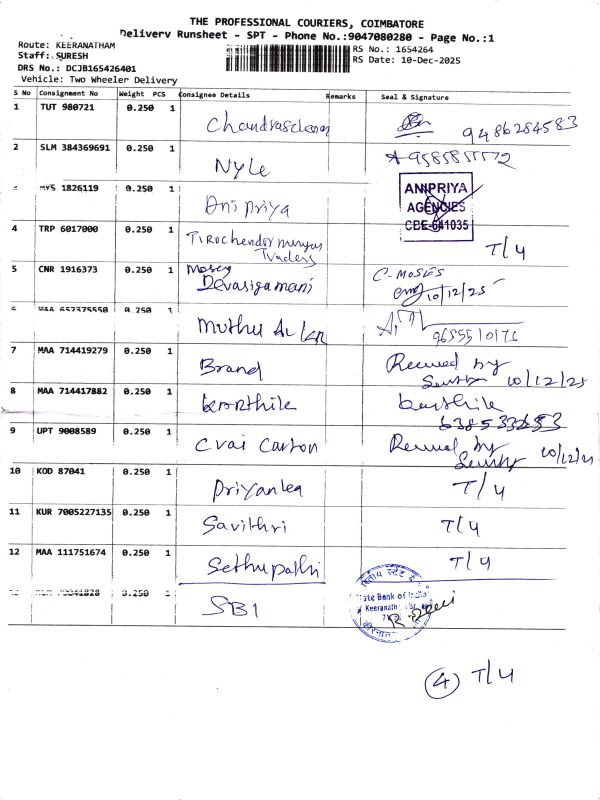 THE PROFESSIONAL COURIERS, COIMBATORE
Delivery Runsheet - SPT - Phone No.:9047080280 - Page No.:1
Route: KEERANATHAM
RS No.: 1654264
Staff: SURESH
RS Date: 10-Dec-2025
DRS No.: DCJB165426401
Vehicle: Two Wheeler Delivery
S No Consignment No Weight PCS Consignee Details Remarks Seal & Signature
1 TUT 980721 0.250 1 9486284583
2 SLM 384369691 0.250 1 Nyle
ANIPRIYA
1826119 0.250 1 Anipriya AGENCIES
CBE-641035
4 TRP 6017000 0.250 1 Tirochendor murugan
Traders T/4
5 CNR 1916373 0.250 1 Moses C-MOSES
Devasigamani 10/12/25
0.250 1 Muthu
7 MAA 714419279 0.250 1 Brand Received by
10/12/25
8 MAA 714417882 0.250 1 karthik
9 UPT 9008589 0.250 1 Carton by
10/12/25
10 KOD 87041 0.250 1 Priyanka T/4
11 KUR 7005227135 0.250 1 Savithri T/4
12 MAA 111751674 0.250 1 Sethupathi T/4
0.250 1 SBI State Bank of India
4 T/4